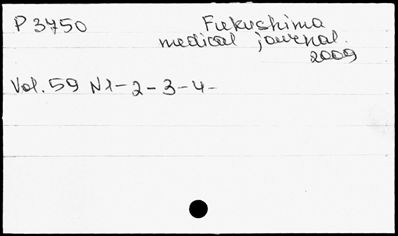 P 3750 Fukushima
medical journal
2009
Vol. 59 N1-2-3-4-